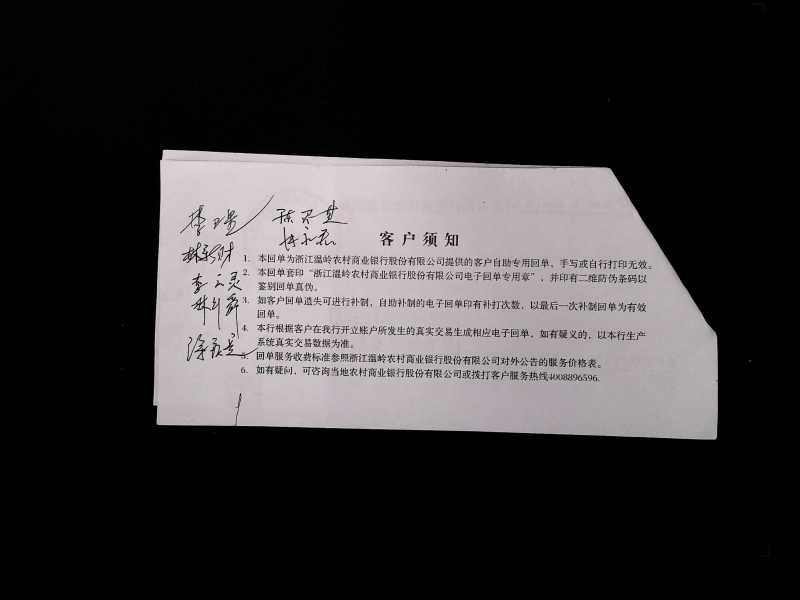 客户须知
1. 本回单为浙江温岭农村商业银行股份有限公司提供的客户自助专用回单,手写或自行打印无效。
2. 本回单套印“浙江温岭农村商业银行股份有限公司电子回单专用章”,并印有二维防伪条码以
鉴别回单真伪。
3. 如客户回单遗失可进行补制,自助补制的电子回单印有补打次数,以最后一次补制回单为有效
回单。
4. 本行根据客户在我行开立账户所发生的真实交易生成相应电子回单,如有疑义的,以本行生产
系统真实交易数据为准。
5. 回单服务收费标准参照浙江温岭农村商业银行股份有限公司对外公告的服务价格表。
6. 如有疑问,可咨询当地农村商业银行股份有限公司或拨打客户服务热线4008896596.